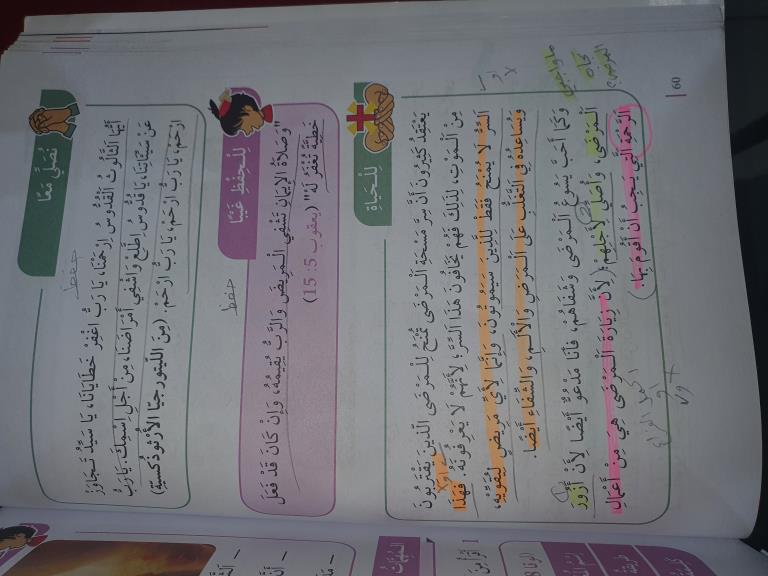 60
لِلْحَيَاةِ
يَعْتَقِدُ كَثِيرُونَ أَنَّ سِرَّ مَسْحَةِ الْمَرْضَى تُمْنَحُ لِلْمَرْضَى الَّذِينَ يَقْتَرِبُونَ
مِنَ الْمَوْتِ، لِذَلِكَ فَهُمْ يَخَافُونَ هَذَا السِّرَّ؛ لِأَنَّهُمْ لَا يَعْرِفُونَهُ. فَهَذَا
السِّرُّ لَا يُمْنَحُ فَقَطْ لِلَّذِينَ سَيَمُوتُونَ، وَإِنَّمَا لِأَيِّ مَرِيضٍ لِيُقَوِّيَهُ،
وَيُسَاعِدَهُ فِي التَّغَلُّبِ عَلَى الْمَرَضِ وَالْأَلَمِ، وَالشِّفَاءِ أَيْضًا.
وَكَمَا أَحَبَّ يَسُوعُ الْمَرْضَى وَشَفَاهُمْ، فَأَنَا مَدْعُوٌّ أَيْضًا لِأَنْ أَزُورَ
الْمَرْضَى، وَأُصَلِّي لِأَجْلِهِمْ؛ (لِأَنَّ زِيَارَةَ الْمَرْضَى هِيَ مِنْ أَعْمَالِ
الرَّحْمَةِ الَّتِي يَجِبُ أَنْ أَقُومَ بِهَا.)
ما واجبي
تجاه
المرضى؟
لِلْحِفْظِ غَيْبًا
حفظ
"وَصَلَاةُ الْإِيمَانِ تَشْفِي الْمَرِيضَ وَالرَّبُّ يُقِيمُهُ، وَإِنْ كَانَ قَدْ فَعَلَ
خَطِيَّةً تُغْفَرُ لَهُ" (يعقوب 5: 15)
نُصَلِّي مَعًا
حفظ
أَيُّهَا الثَّالُوثُ الْقُدُّوسُ ارْحَمْنَا، يَا رَبُّ اغْفِرْ خَطَايَانَا، يَا سَيِّدُ تَجَاوَزْ
عَنْ سَيِّئَاتِنَا، يَا قُدُّوسُ اطَّلِعْ وَاشْفِي أَمْرَاضَنَا، مِنْ أَجْلِ اسْمِكَ، يَا رَبُّ
ارْحَمْ، يَا رَبُّ ارْحَمْ، يَا رَبُّ ارْحَمْ. (مِنَ اللِّيتُورْجِيَّا الْأُرْثُوذُكْسِيَّةِ)